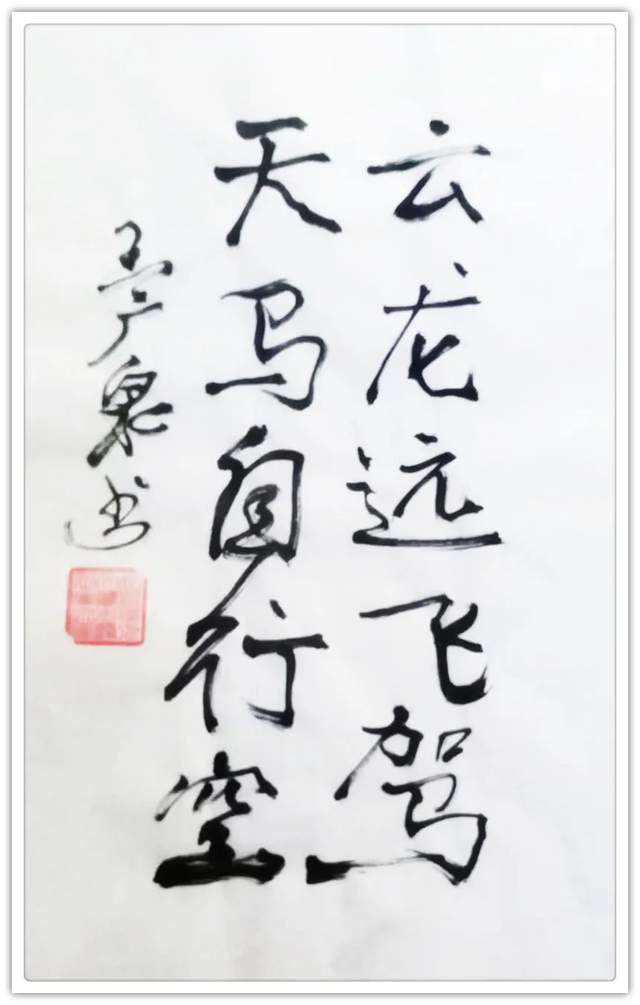 云龙远飞驾
天马自行空
王广泉书